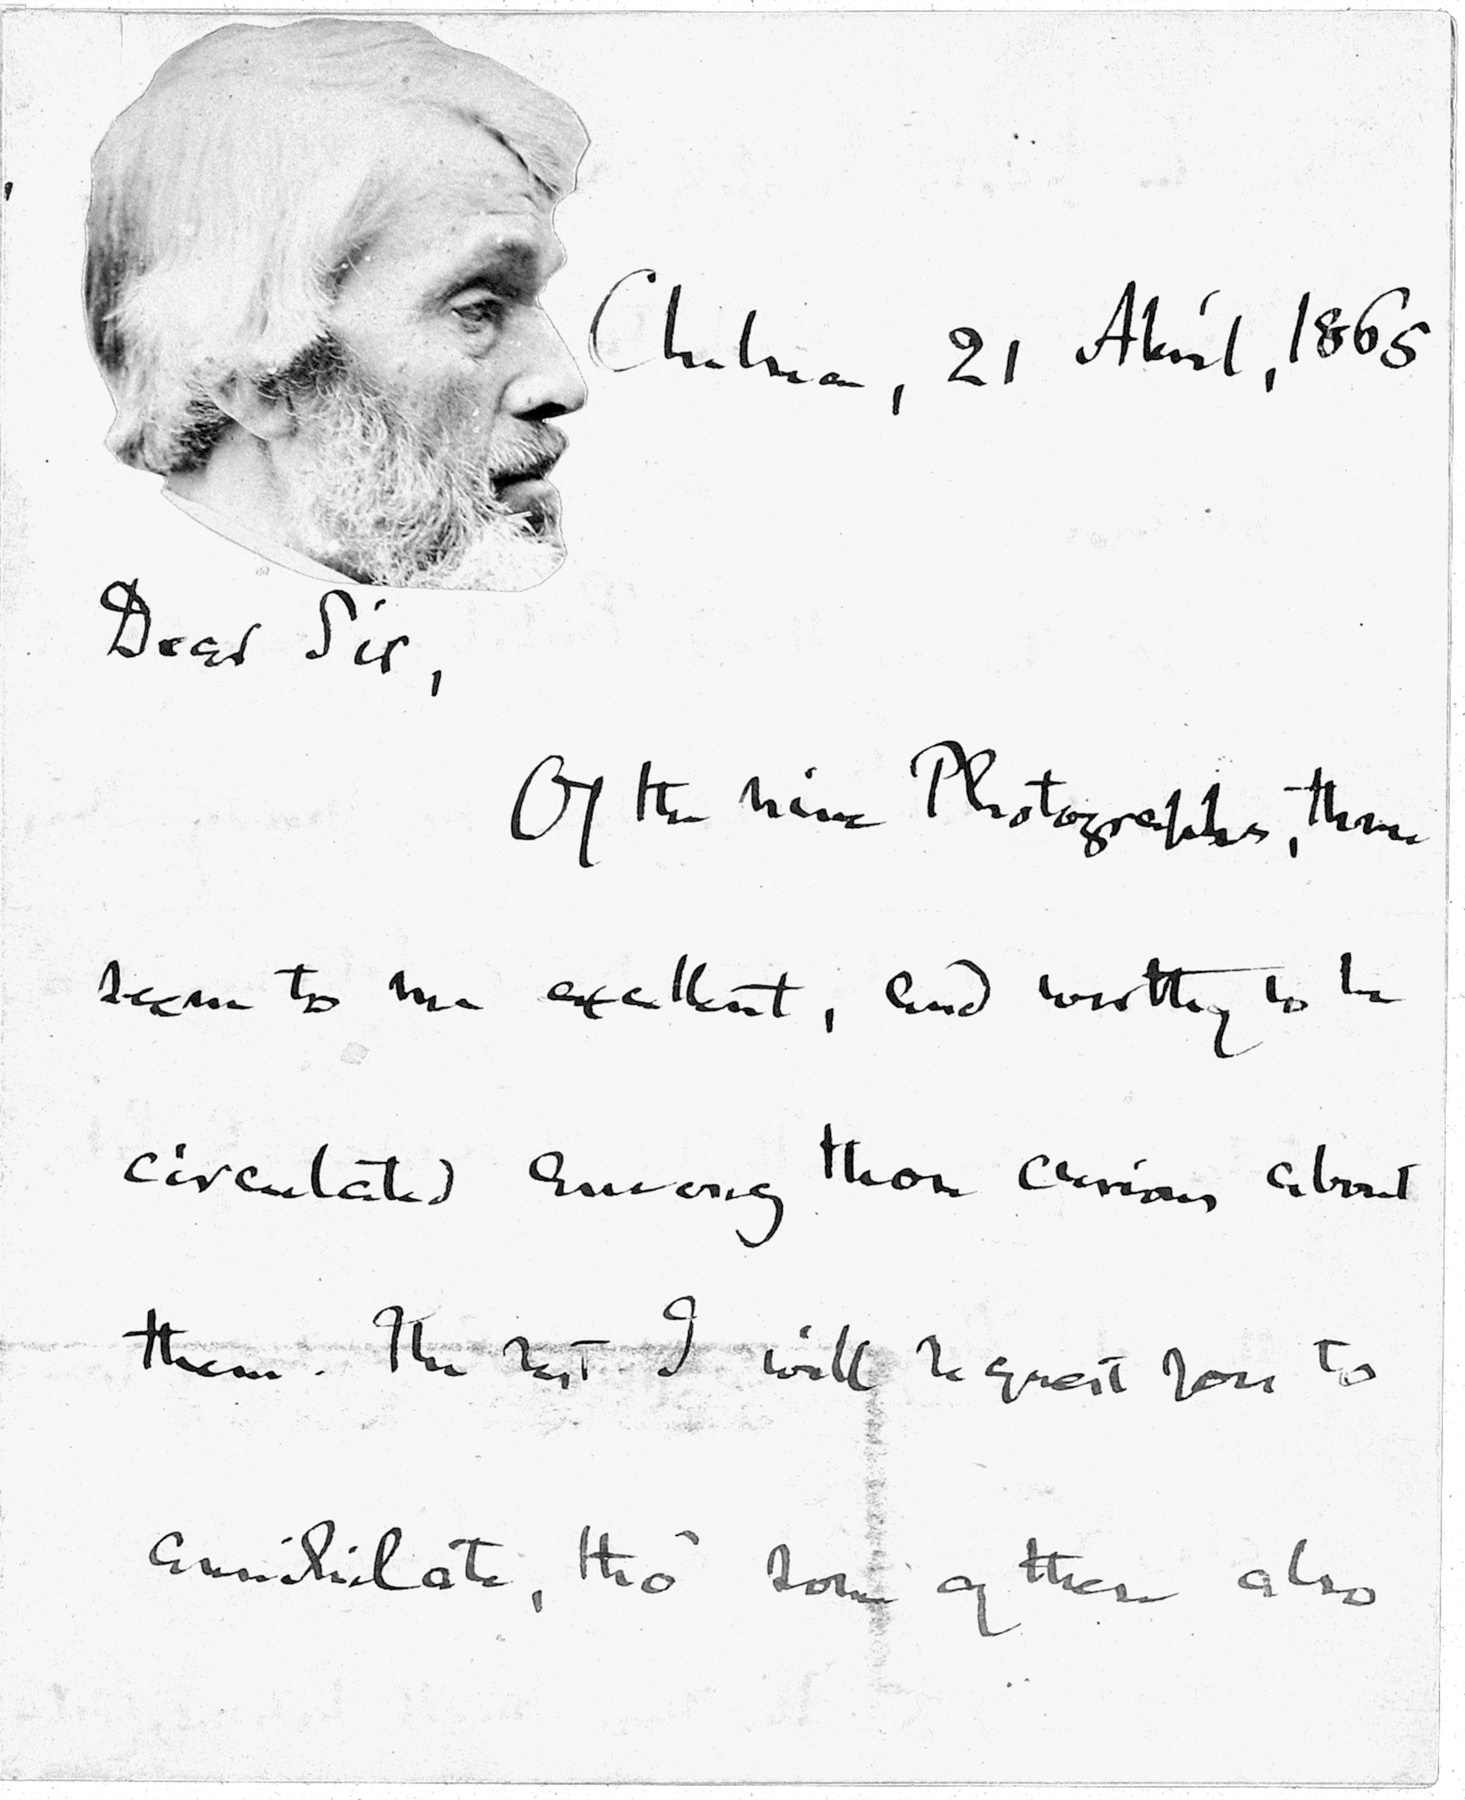 Chelsea, 21 April, 1865
Dear Sir,
Of the nine Photographs, three
seem to me excellent, and worthy to be
circulated among those curious about
them. The rest I will request you to
annihilate, tho' some of these also